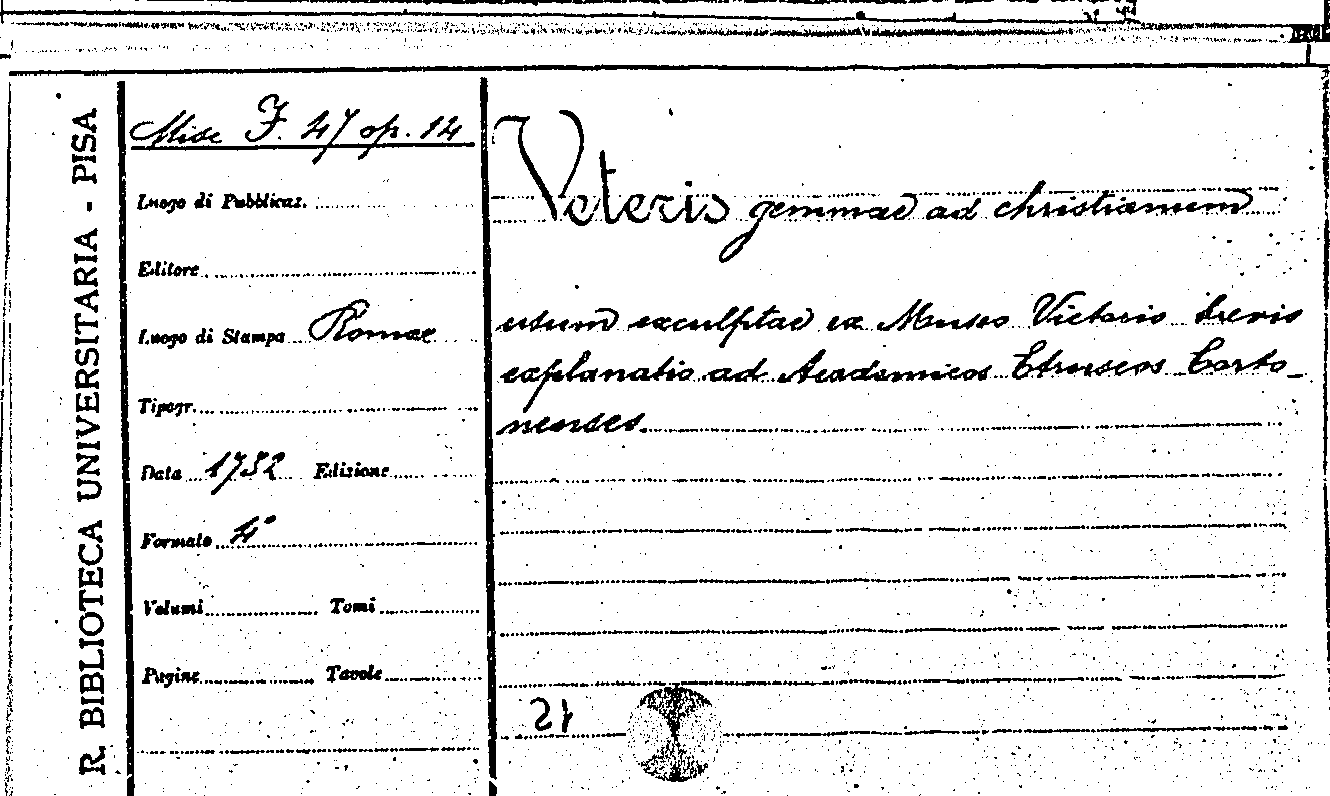 R. BIBLIOTECA UNIVERSITARIA - PISA
Misc F. 47 op. 14
Luogo di Pubblicaz.
Editore
Luogo di Stampa Romae
Tipogr.
Data 1732 Edizione
Formato 4°
Volumi Tomi
Pagine Tavole
Veteris gemmae ad christianum
usum exculptae ex Museo Victorio brevis
explanatio ad Academicos Etruscos Corto_
nenses.